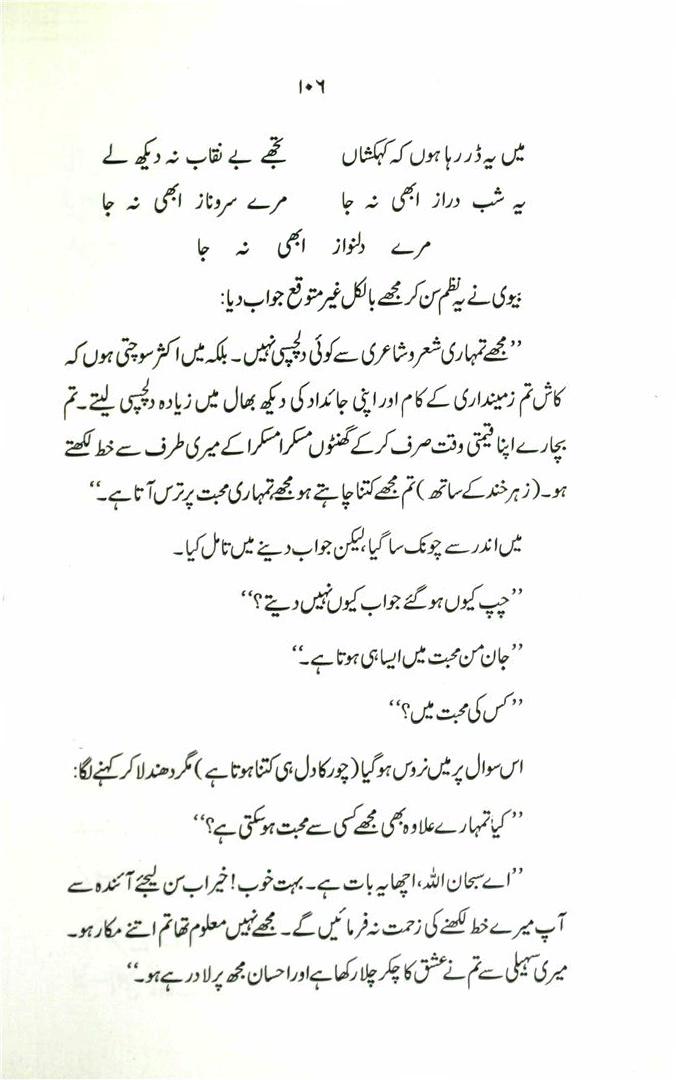 ۱۰۶
میں یہ ڈر رہا ہوں کہ کہکشاں تجھے بے نقاب نہ دیکھ لے
یہ شب دراز ابھی نہ جا مرے سروناز ابھی نہ جا
مرے دلنواز ابھی نہ جا
بیوی نے یہ نظم سن کر مجھے بالکل غیر متوقع جواب دیا:
’’مجھے تمہاری شعر و شاعری سے کوئی دلچسپی نہیں۔ بلکہ میں اکثر سوچتی ہوں کہ
کاش تم زمینداری کے کام اور اپنی جائداد کی دیکھ بھال میں زیادہ دلچسپی لیتے۔ تم
بچارے اپنا قیمتی وقت صرف کر کے گھنٹوں مسکرا مسکرا کے میری طرف سے خط لکھتے
ہو۔ (زہر خند کے ساتھ) تم مجھے کتنا چاہتے ہو مجھے تمہاری محبت پر ترس آتا ہے۔‘‘
میں اندر سے چونک سا گیا، لیکن جواب دینے میں تامل کیا۔
’’چپ کیوں ہو گئے جواب کیوں نہیں دیتے؟‘‘
’’جان من محبت میں ایسا ہی ہوتا ہے۔‘‘
’’کس کی محبت میں؟‘‘
اس سوال پر میں نروس ہو گیا (چور کا دل ہی کتنا ہوتا ہے) مگر دھندلا کر کہنے لگا:
’’کیا تمہارے علاوہ بھی مجھے کسی سے محبت ہو سکتی ہے؟‘‘
’’اے سبحان اللہ، اچھا یہ بات ہے۔ بہت خوب! خیر اب سن لیجئے آئندہ سے
آپ میرے خط لکھنے کی زحمت نہ فرمائیں گے۔ مجھے نہیں معلوم تھا تم اتنے مکار ہو۔
میری سہیلی سے تم نے عشق کا چکر چلا رکھا ہے اور احسان مجھ پر لاد رہے ہو۔‘‘